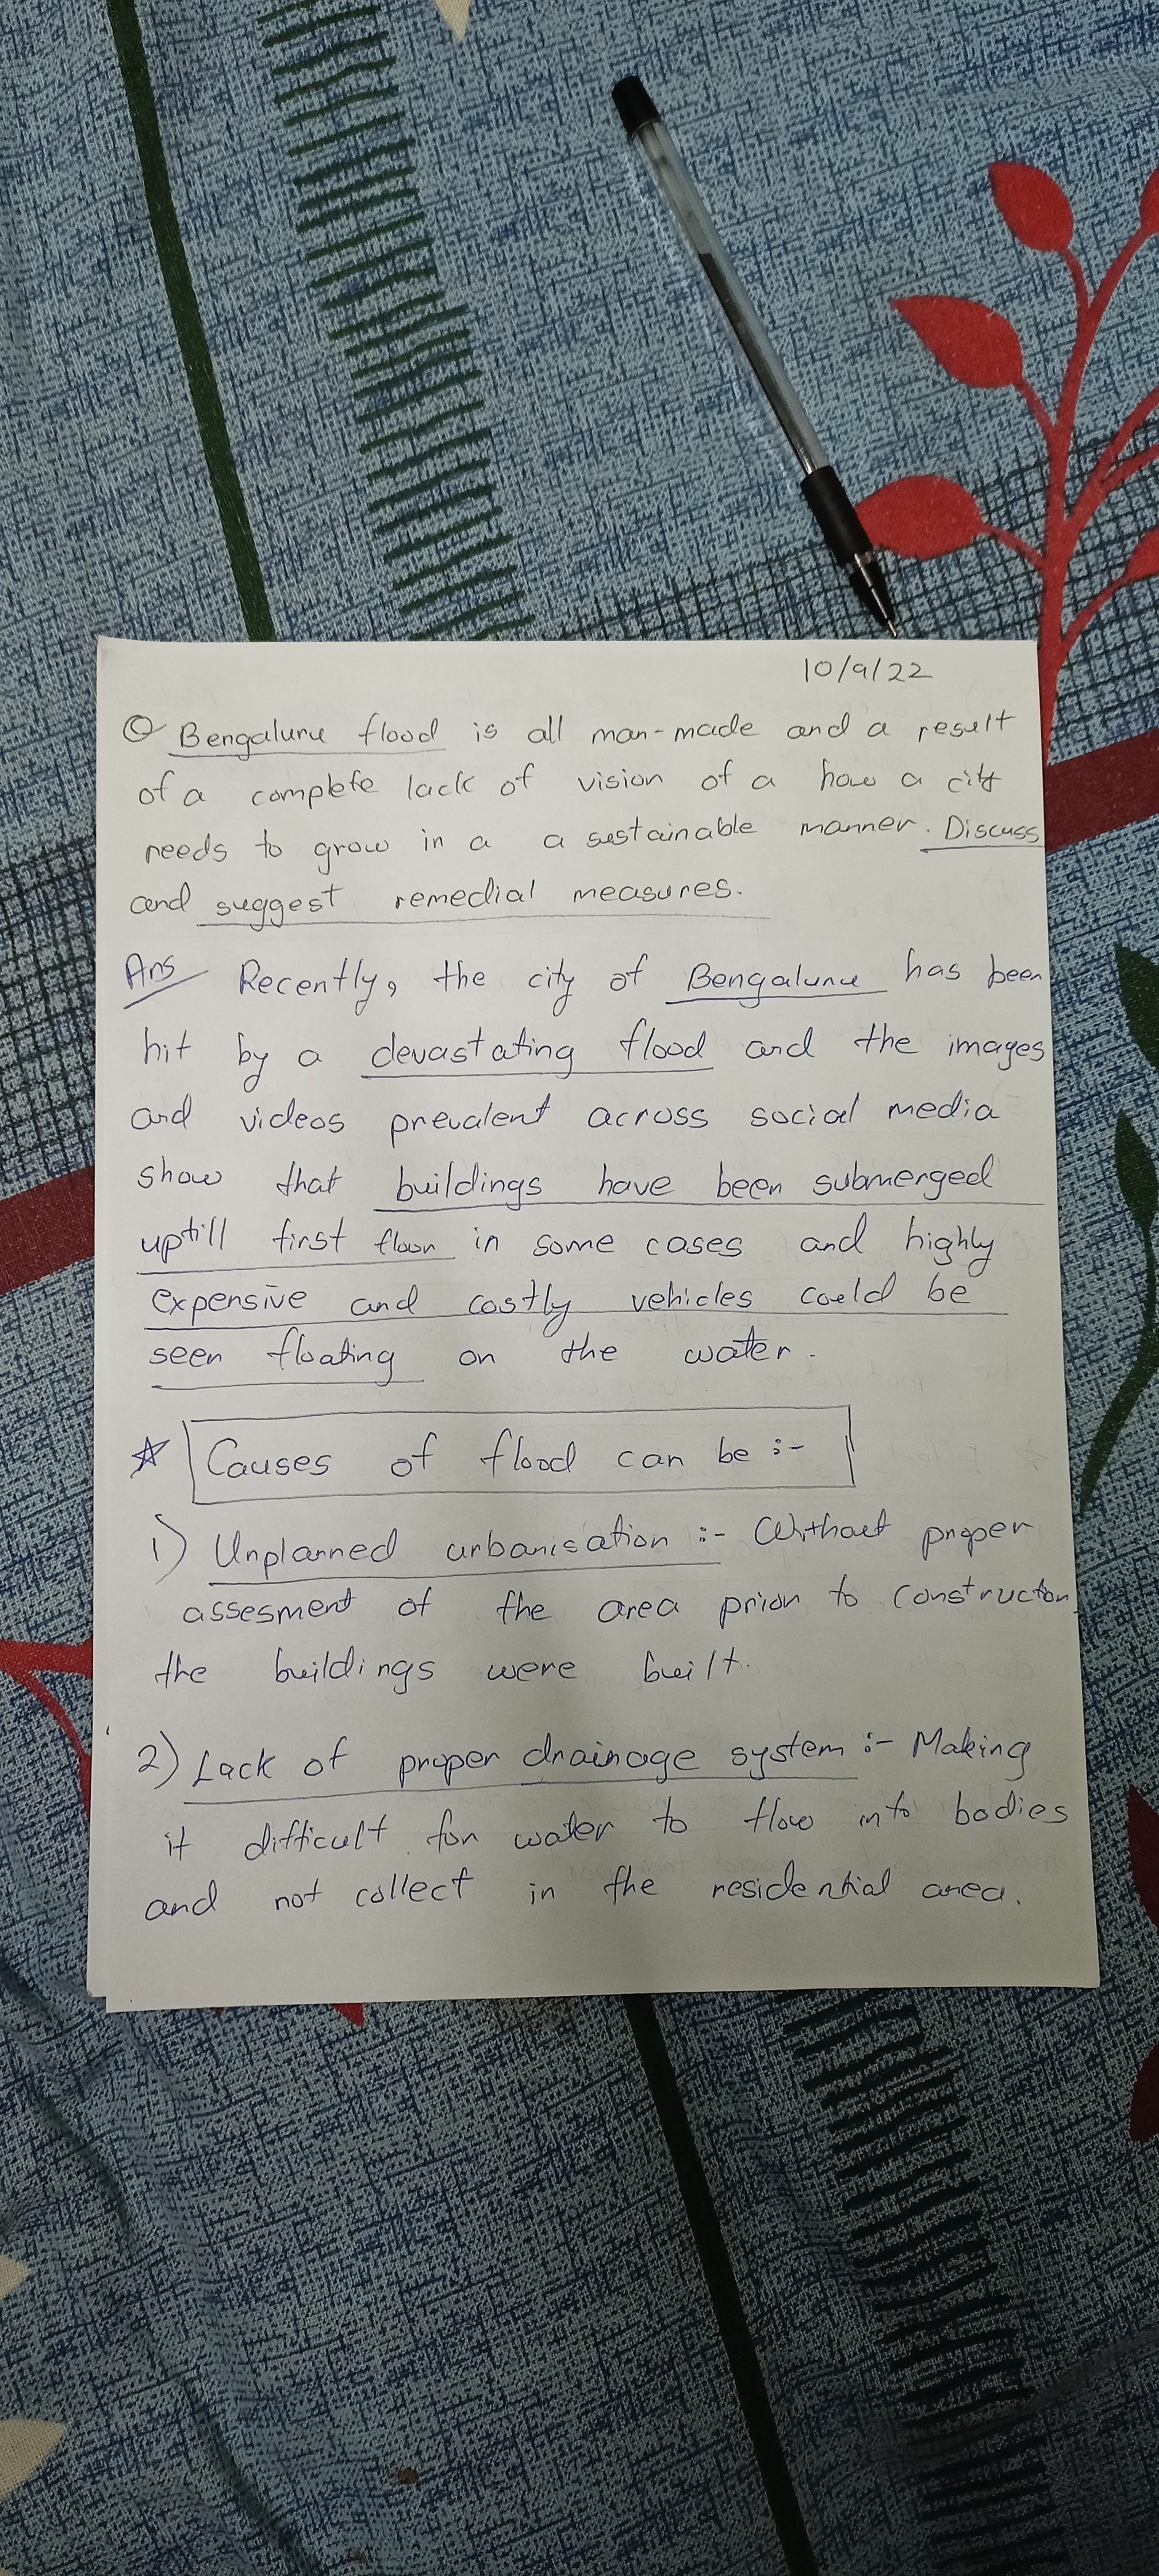 10/9/22
Q Bengaluru flood is all man-made and a result
of a complete lack of vision of a how a city
needs to grow in a a sustainable manner. Discuss
and suggest remedial measures.
Ans Recently, the city of Bengaluru has been
hit by a devastating flood and the images
and videos prevalent across social media
show that buildings have been submerged
uptill first floor in some cases and highly
expensive and costly vehicles could be
seen floating on the water.
☆ Causes of flood can be :-
1) Unplanned urbanisation :- Without proper
assesment of the area prior to construction
the buildings were built.
2) Lack of proper drainage system :- Making
it difficult for water to flow into bodies
and not collect in the residential area.